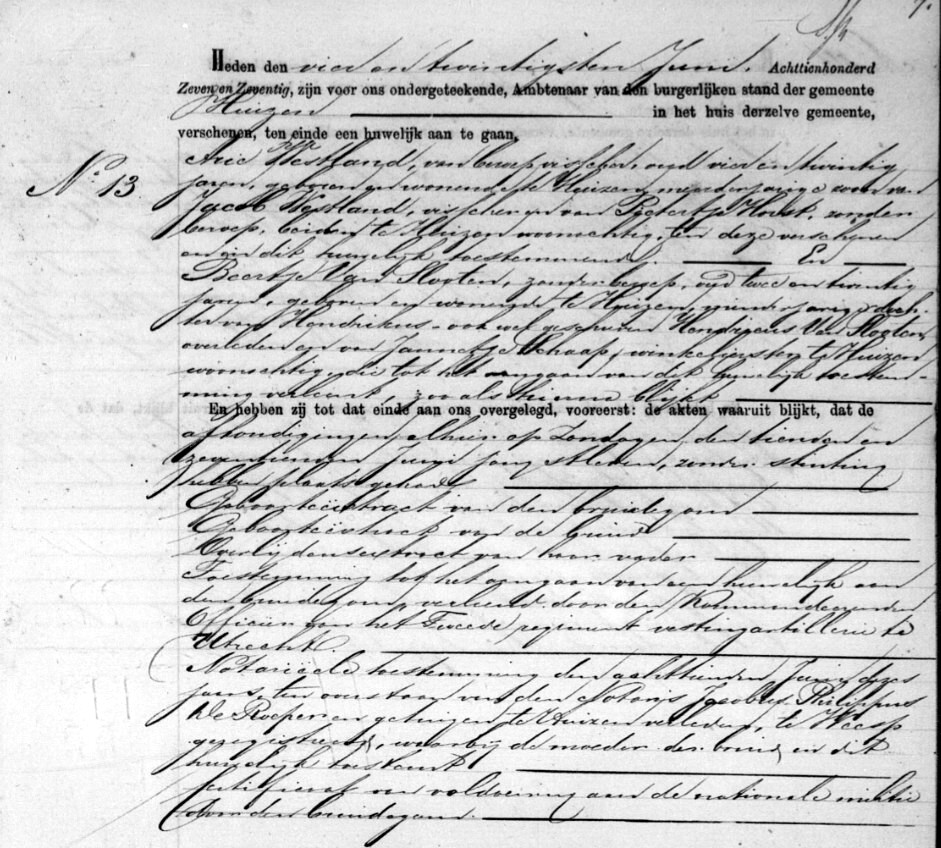 7.
Heden den vier en twintigsten Juni. Achttienhonderd
Zeven en Zeventig, zijn voor ons ondergeteekende, Ambtenaar van den burgerlijken stand der gemeente
Huizen in het huis derzelve gemeente,
verschenen, ten einde een huwelijk aan te gaan,
No. 13
Arie Westland, van beroep visscher, oud vier en twintig
jaren, geboren en wonende te Huizen, meerderjarige zoon van
Jacob Westland, visscher en van Pietertje Horst, zonder
beroep, beiden te Huizen woonachtig, ten deze verschenen
en in dit huwelijk toestemmend En
Beertje Van Slooten, zonder beroep, oud twee en twintig
jaren, geboren en wonende te Huizen, minderjarige doch-
ter van Hendrikus - ook wel geschreven Hendricus Van Slooten,
overleden en van Jannetje Schaap, winkelierster, te Huizen
woonachtig, die tot het aangaan van dit huwelijk toestem-
ming verleent, zoo als hierna blijkt
En hebben zij tot dat einde aan ons overgelegd, vooreerst: de akten waaruit blijkt, dat de
afkondigingen, alhier op Zondagen den tienden en
zeventienden Junij jongstleden, zonder stuiting
hebben plaats gehad
Geboorteextract van den bruidegom
Geboorteextract van de bruid
Overlijdensextract van haar vader
Toestemming tot het aangaan van een huwelijk aan
den bruidegom verleend door den Kommandeerenden
Officier van het Tweede regiment vestingartillerie te
Utrecht
Notarieele toestemming den achttienden Junij dezes
jaars, ten overstaan van den Notaris Jacobus Philippus
De Roeper en getuigen te Huizen verleden, te Weesp
geregistreerd, waarbij de moeder der bruid in dit
huwelijk toestemt
Certificaat van voldoening aan de nationale militie
door den bruidegom.